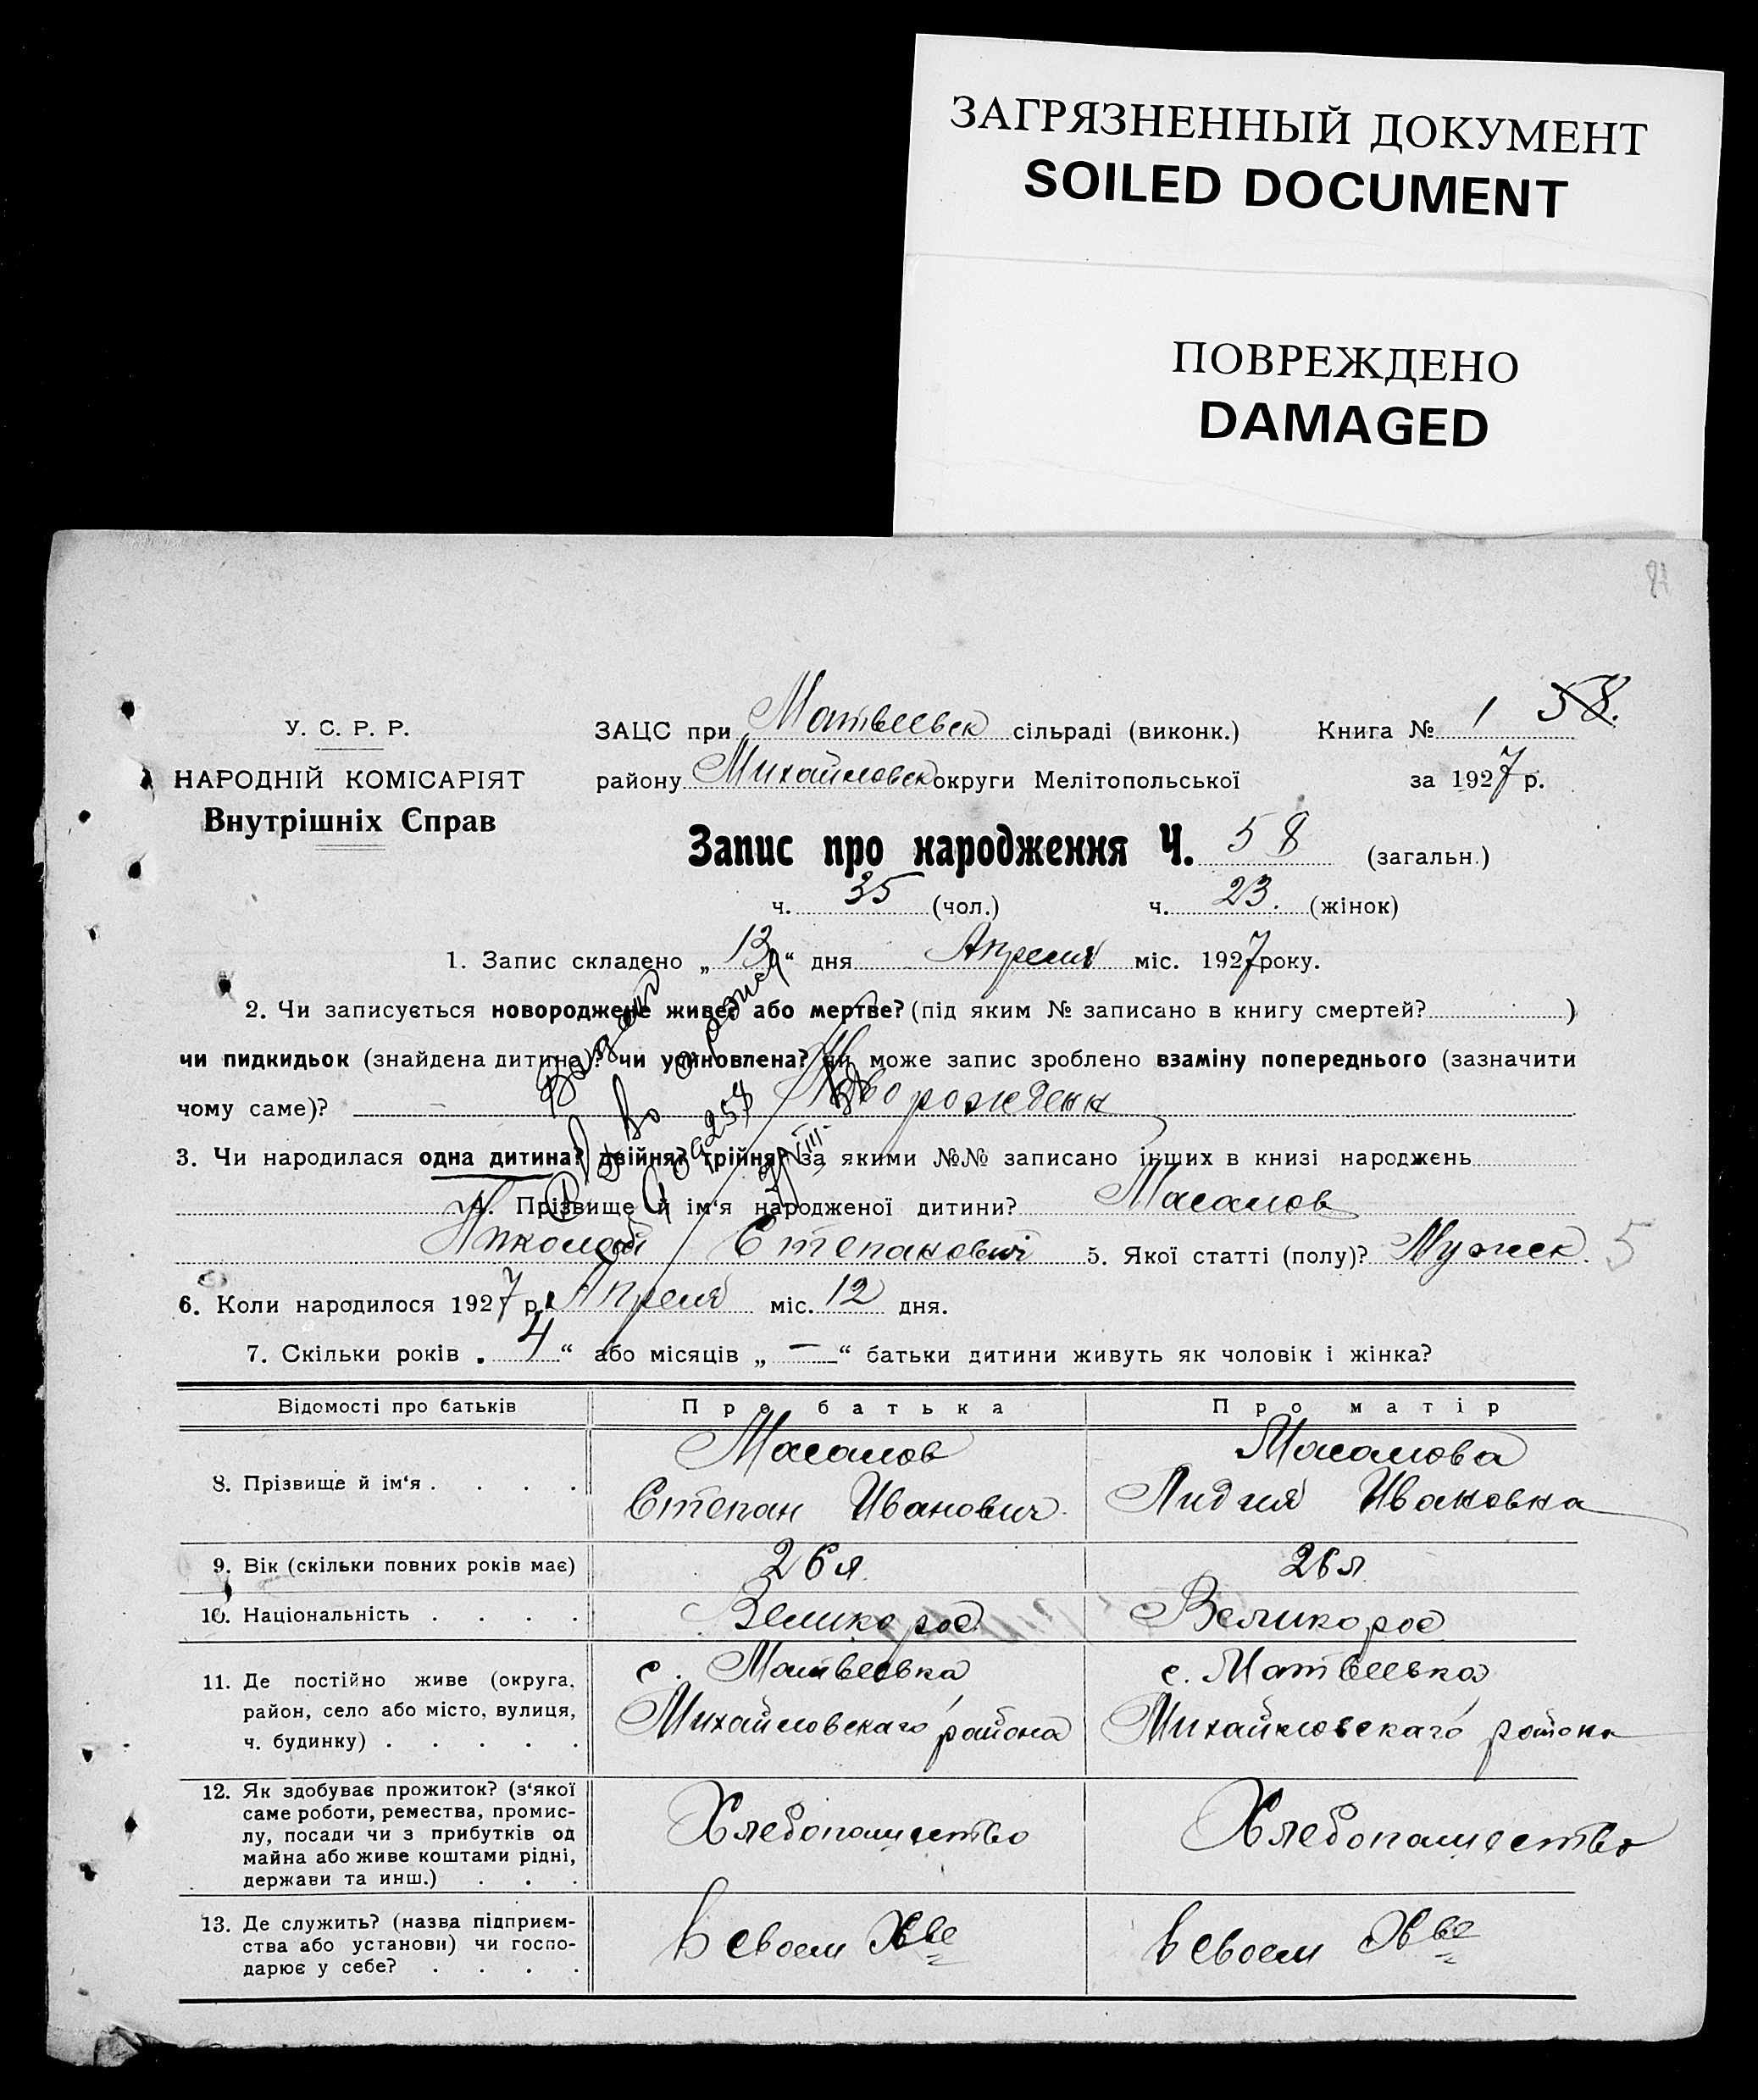 ЗАГРЯЗНЕННЫЙ ДОКУМЕНТ
SOILED DOCUMENT
ПОВРЕЖДЕНО
DAMAGED
У. С. Р. Р.
НАРОДНІЙ КОМІСАРІЯТ
Внутрішніх Справ
ЗАЦС при Матвеевск сільраді (виконк.) Книга № 1 58.
району Михайловск округи Мелітопольської за 1927 р.
Запис про народження Ч. 58 (загальн.)
ч. 35 (чол.) ч. 23. (жінок)
1. Запис складено „ 13 “ дня Апреля міс. 1927 року.
2. Чи записується новороджене живе? або мертве? (під яким № записано в книгу смертей? )
чи пидкидьок (знайдена дитина)? чи усиновлена? чи може запис зроблено взаміну попереднього (зазначити
чому саме)? – Новорожденн
3. Чи народилася одна дитина? двійня? трійня? за якими №№ записано інших в книзі народжень
4. Прізвище й ім'я народженої дитини? Масалов
Николай Степанович 5. Якої статті (полу)? Мужск. 5
6. Коли народилося 1927 р. Апреля міс. 12 дня.
7. Скільки років „ 4 “ або місяців „ – “ батьки дитини живуть як чоловік і жінка?
Відомості про батьків Про батька Про матір
8. Прізвище й ім'я . . . . Масалов Масалова
Степан Иванович Лидия Ивановна
9. Вік (скільки повних років має) 26 л. 26 л
10. Національність . . . . Великорос. Великорос
11. Де постійно живе (округа, район, село або місто, вулиця, ч. будинку) . . . . . с. Матвеевка с. Матвеевка
Михайловскаго района Михайловскаго района
12. Як здобуває прожиток? (з'якої саме роботи, ремества, промислу, посади чи з прибутків од майна або живе коштами рідні, держави та инш.) . . . Хлебопашество Хлебопашество
13. Де служить? (назва підприємства або установи) чи господарює у себе? . . . . В своем Хве В своем Хве